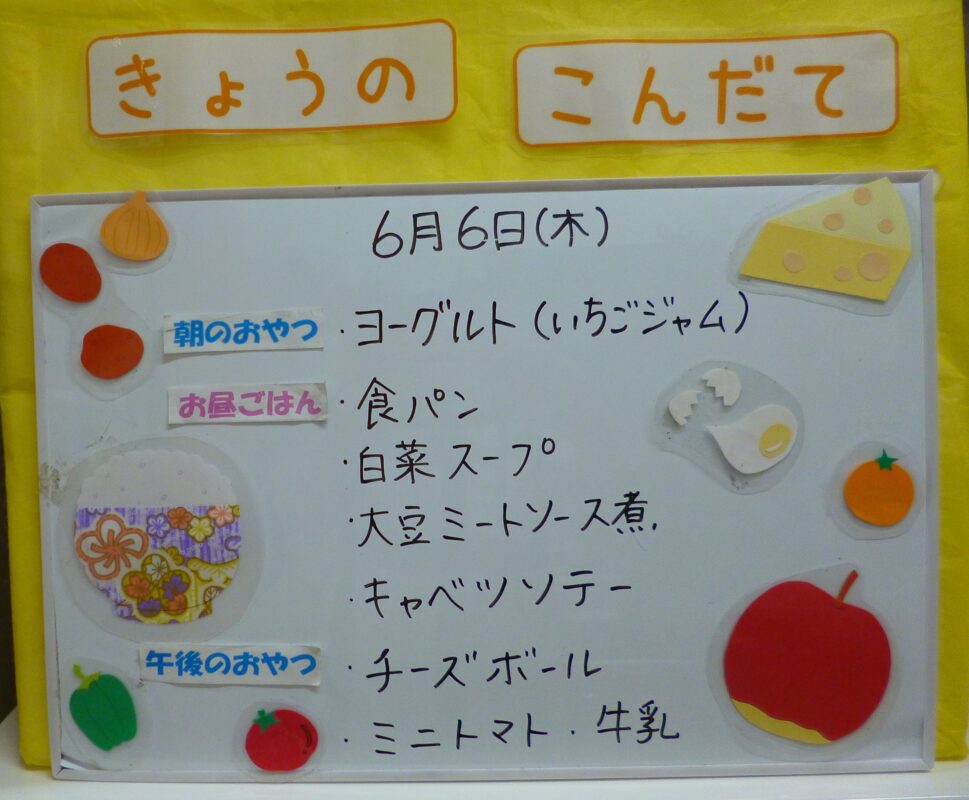 きょうの こんだて
6月6日(木)
朝のおやつ ・ヨーグルト(いちごジャム)
お昼ごはん ・食パン
・白菜スープ
・大豆ミートソース煮.
・キャベツソテー
午後のおやつ ・チーズボール
・ミニトマト・牛乳